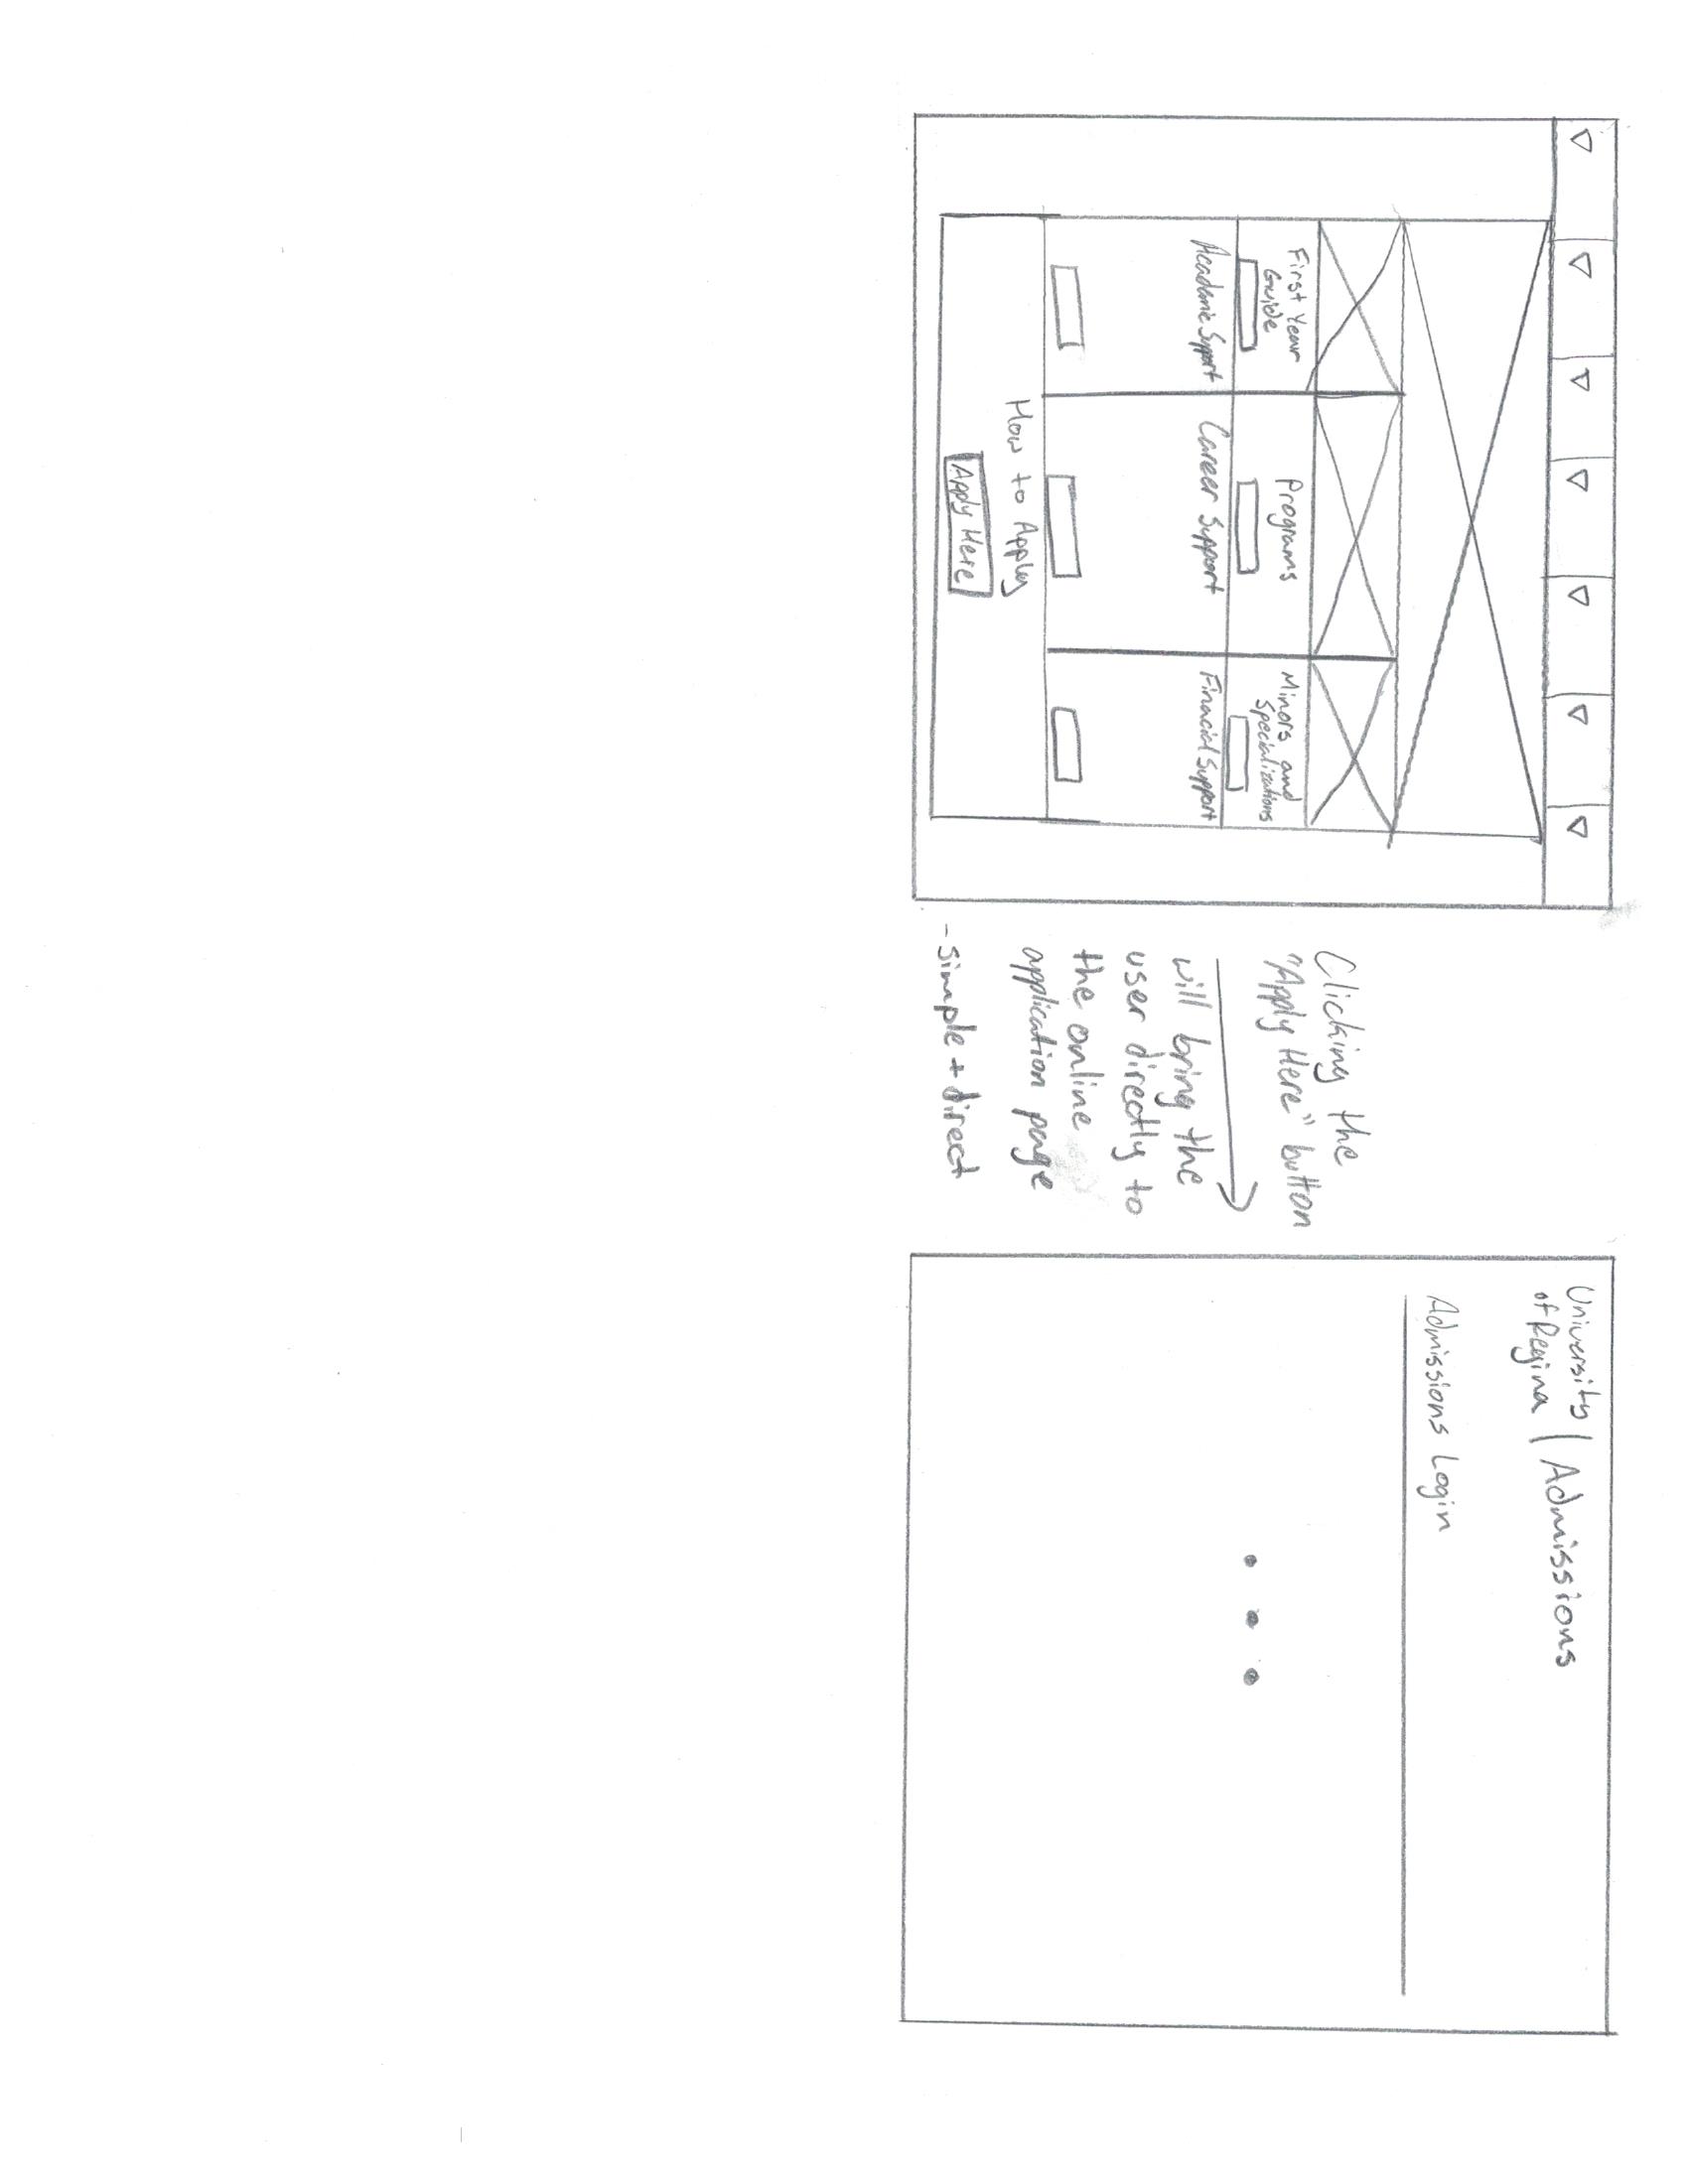 First Year
Guide
Programs
Minors and
Specializations
Academic Support
Career Support
Finacial Support
How to Apply
Apply Here
Clicking the
"Apply Here" button
will bring the
user directly to
the online
application page
- simple + direct
University
of Regina | Admissions
Admissions Login
• • •